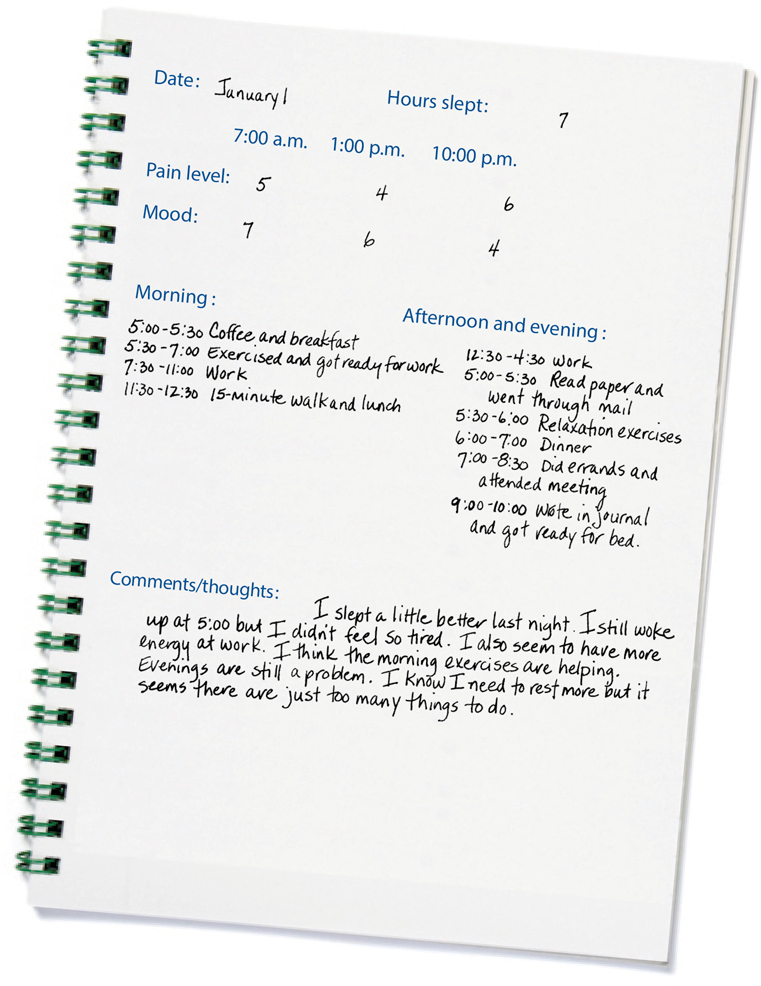 Date: January 1 Hours slept: 7
7:00 a.m. 1:00 p.m. 10:00 p.m.
Pain level: 5 4 6
Mood: 7 6 4
Morning:
5:00-5:30 Coffee and breakfast
5:30-7:00 Exercised and got ready for work
7:30-11:00 Work
11:30-12:30 15-minute walk and lunch
Afternoon and evening:
12:30-4:30 Work
5:00-5:30 Read paper and
went through mail
5:30-6:00 Relaxation exercises
6:00-7:00 Dinner
7:00-8:30 Did errands and
attended meeting
9:00-10:00 Wote in journal
and got ready for bed.
Comments/thoughts:
I slept a little better last night. I still woke
up at 5:00 but I didn't feel so tired. I also seem to have more
energy at work. I think the morning exercises are helping.
Evenings are still a problem. I know I need to rest more but it
seems there are just too many things to do.